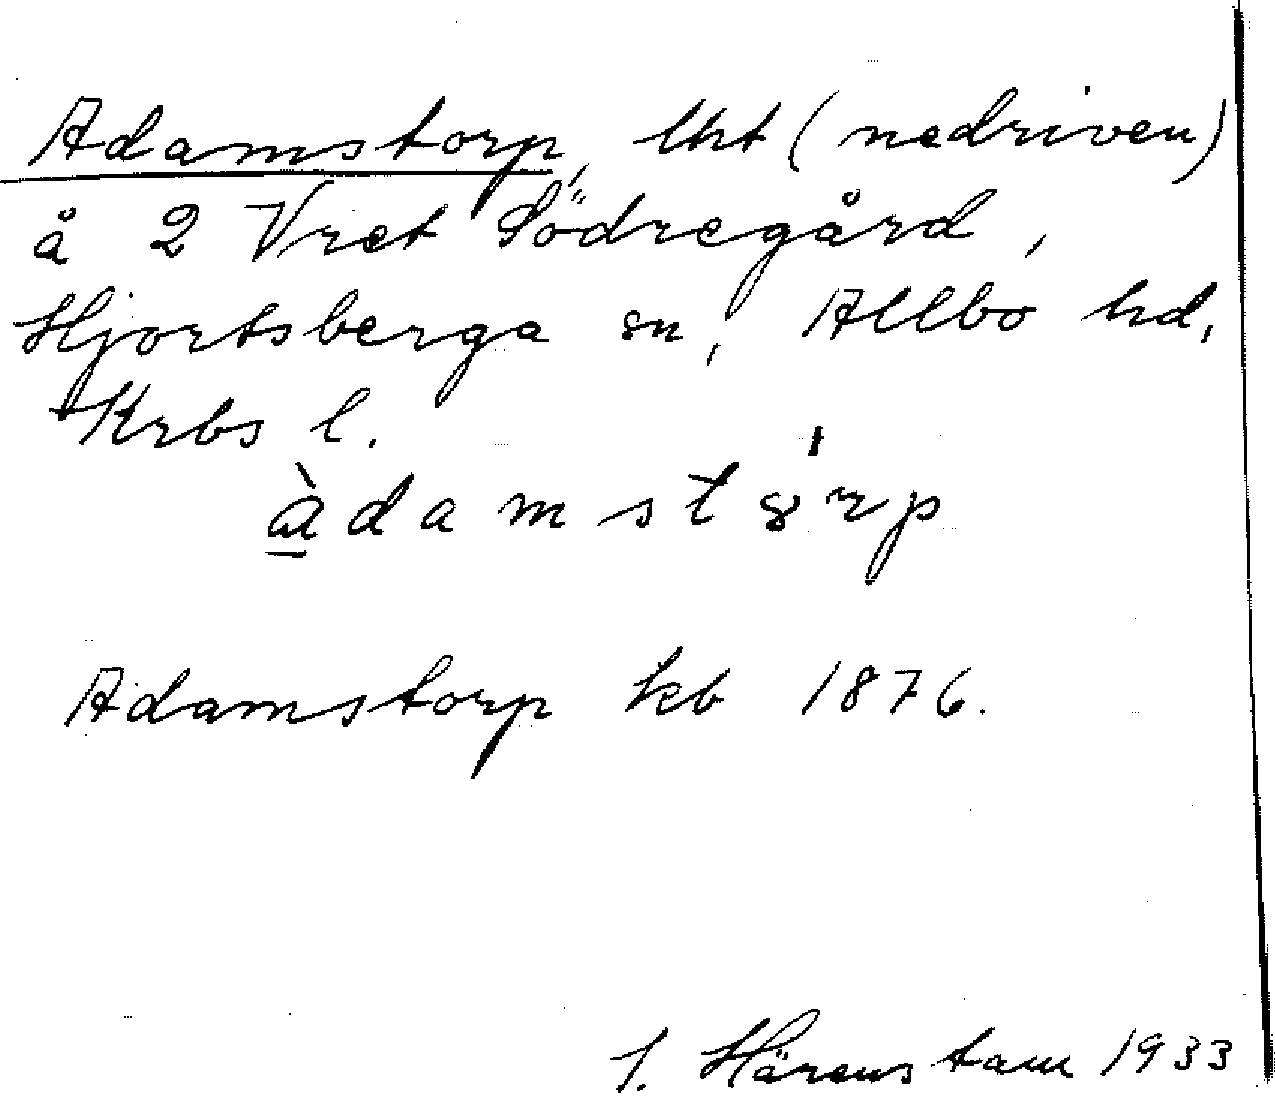 Adamstorp, lht (nedriven)
å 2 Vret Södregård,
Hjortsberga sn, Allbo hd,
Krbs l.
àdamstórp
Adamstorp kb 1876.
Härenstam 1933